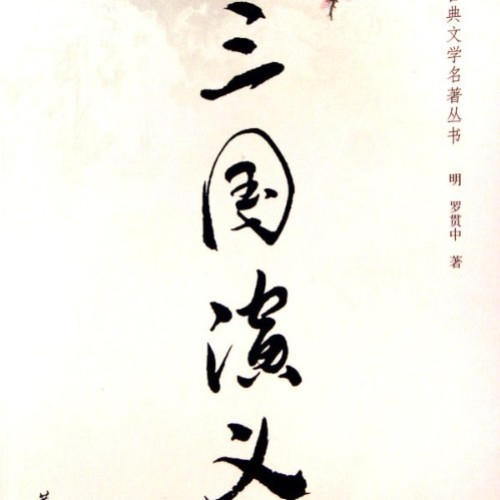 三国演义
典文学名著丛书
明 罗贯中 著